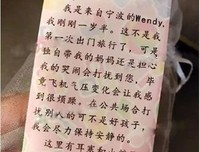 我是来自宁波的Wendy.
我刚刚一岁半。这不是我
第一次出门旅行了,可是
独自带我的妈妈还是担心
我的哭闹会打扰到您,毕
竟飞机气压变化会让我感
到很烦躁。在公共场合打
扰别人的可不是好孩子,
我会尽力保持安静的。
这里有耳塞和